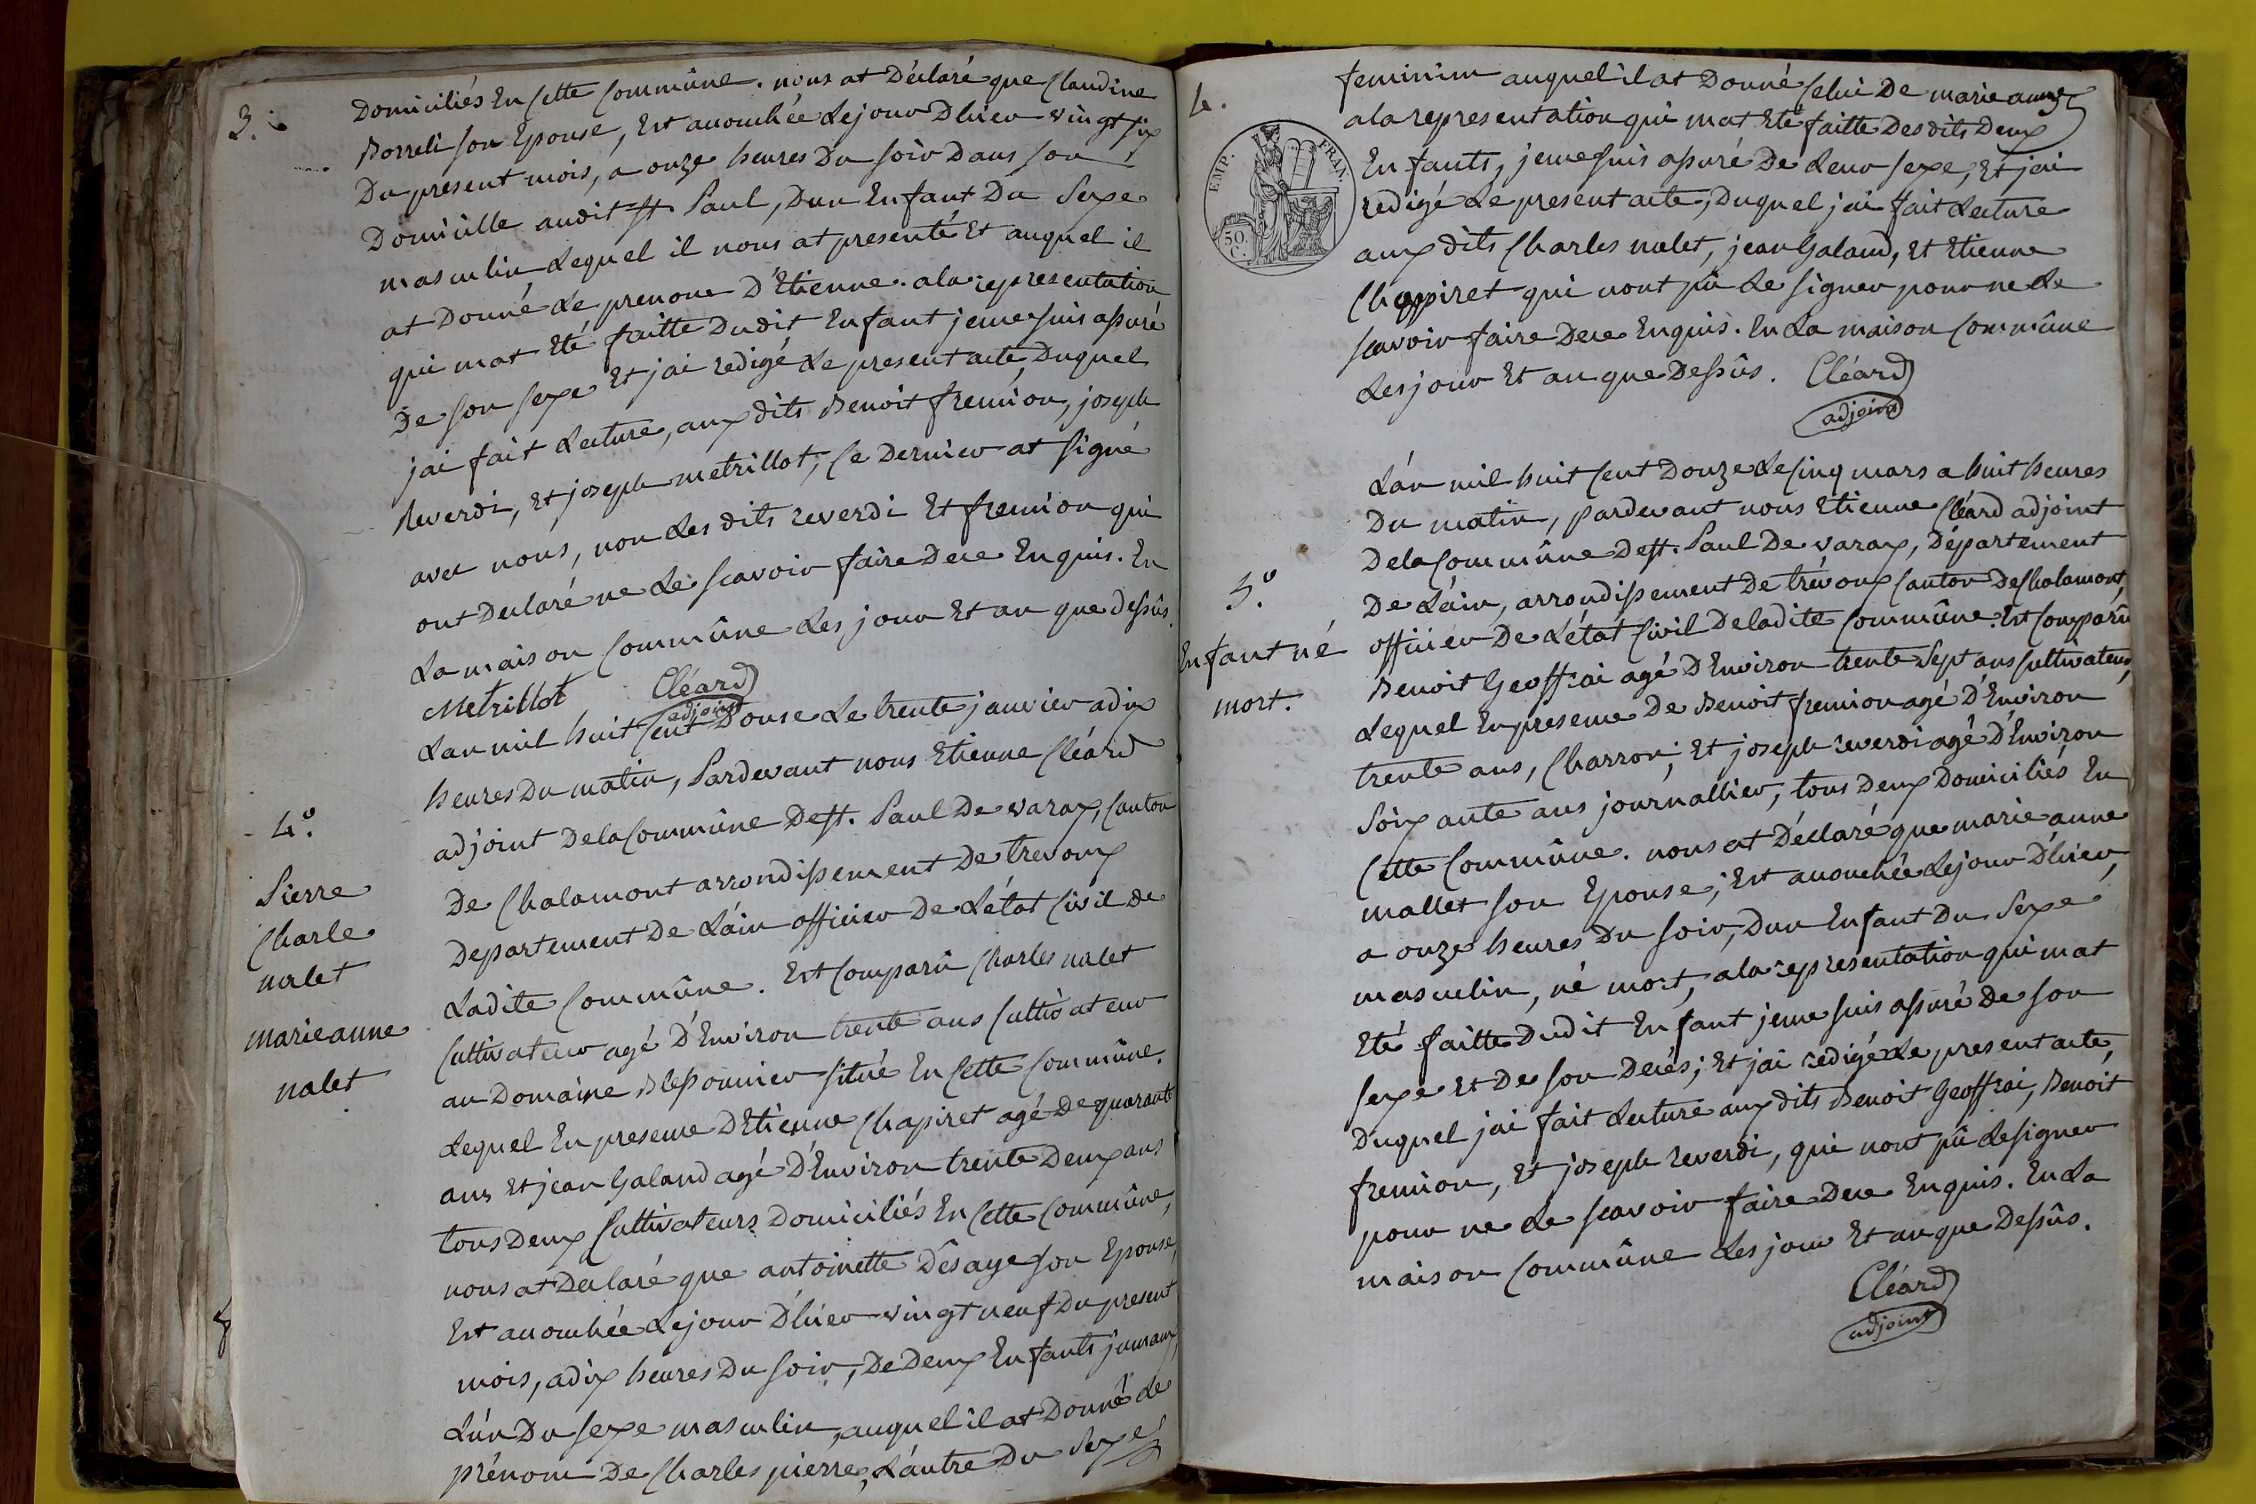 3.
Domiciliés En Cette Commûne. nous at Déclaré que Claudine
Borreli son Epouse, Est accouchée Le jour D'hier vingt six
Du present mois, a onze heures Du soir Dans son
Domicille audit St Paul, D'un Enfant Du Sexe
masculin Lequel il nous at presenté Et auquel il
at Donné Le prenom D'Etienne. ala representation
qui mat Eté faitte Dudit Enfant je me suis assuré
De son sexe Et jai redigé Le present acte, Duquel
jai fait Lecture, aux dits Benoit fremion, joseph
Reverdi, Et joseph metrillot, Ce Dernier at signé
avec nous, non Les dits reverdi Et fremion qui
ont Declaré ne Le scavoir faire De ce Enquis. En
La maison Commûne Les jour Et an que Dessûs.
Metrillot Cléard
adjoint
4.º
Pierre
Charle
nalet
marieanne
nalet
Lan mil huit Cent Douse Le trente janvier a dix
heures Du matin, Pardevant nous Etienne Cléard
adjoint Dela Commûne De St. Paul De varax, Canton
De Chalamont arrondissement De trevoux
Departement De L'ain officier De L'état Civil de
Ladite Commûne. Est Comparû Charles nalet
Cultivateur agé D'Environ trente ans Cultivateur
au Domaine Blessonnier situé En Cette Commûne.
Lequel En presence D'Etienne Chapiret agé De quarante
ans Et jean Galand agé D'Environ trente Deux ans
tous Deux Cultivateurs Domiciliés En Cette Commûne,
nous at Declaré que antoinette Désaye son Epouse,
Est accouchée Le jour D'hier vingt neuf Du present
mois, a dix heures Du soir, De Deux Enfants jumaux,
L'ún Du sexe masculin, auquel il at Donné Le
prénom De Charles pierre, L'áutre Du Sexe
4.
EMP. FRAN.
50.
C.
feminim auquel il at Donné Celui De marie anne
ala representation qui mat Eté faitte Des dits Deux
Enfants, je me suis assuré De Leur sexe, Et jai
redigé Le present acte, Duquel jai fait Lecture
aux dits Charles nalet, jean Galand, Et Etienne
Chappiret qui nont pû Le signer pour ne Le
scavoir faire De ce Enquis. En La maison Commûne
Les jour Et an que Dessûs. Cléard
adjoint
5.º
Enfant né
mort.
L'án mil huit Cent Douze Le Cinq mars a huit heures
Du matin, pardevant nous Etienne Cléard adjoint
Dela Commûne De St. Paul De varax, Département
De L'áin, arrondissement De trévoux Canton De Chalamont,
officier De L'état Civil De ladite Commûne. Est Comparû
Benoit Geoffrai agé D'Environ trente Sept ans Cultivateur,
Lequel En presence De Benoit fremion agé D'Environ
trente ans, Charron; Et joseph reverdi agé D'Environ
Soixante ans journallier, tous Deux Domiciliés En
Cette Commûne. nous at Déclaré que marie anne
mallet son Epouse; Est accouchée Le jour D'hier,
a onze heures Du soir, D'un Enfant Du Sexe
masculin, né mort, ala representation qui mat
Eté faitte Dudit Enfant je me suis assuré De son
sexe Et De son Decés; Et jai redigé Le present acte,
Duquel jai fait Lecture aux dits Benoit Geoffrai, Benoit
fremion, Et joseph reverdi, qui nont pû Le signer
pour ne Le scavoir faire De ce Enquis. En La
maison Commûne Les jour Et an que Dessûs.
Cléard
adjoint